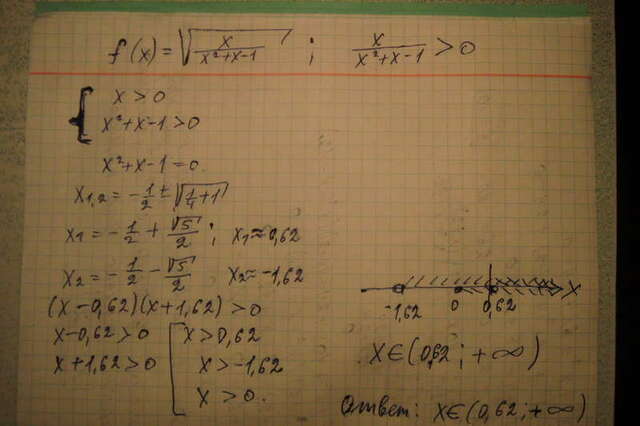 f(x) = √(x/(x²+x-1)) ; x/(x²+x-1) > 0
{ x > 0
x²+x-1 > 0
x²+x-1 = 0.
x₁,₂ = -1/2 ± √(1/4+1)
x₁ = -1/2 + √5/2 ; x₁ ≈ 0,62
x₂ = -1/2 - √5/2 x₂ ≈ -1,62
(x-0,62)(x+1,62) > 0
x-0,62 > 0 [ x > 0,62
x+1,62 > 0 x > -1,62
x > 0.
-1,62 0 0,62 x
x∈(0,62 ; +∞)
Ответ: x∈(0,62 ; +∞)